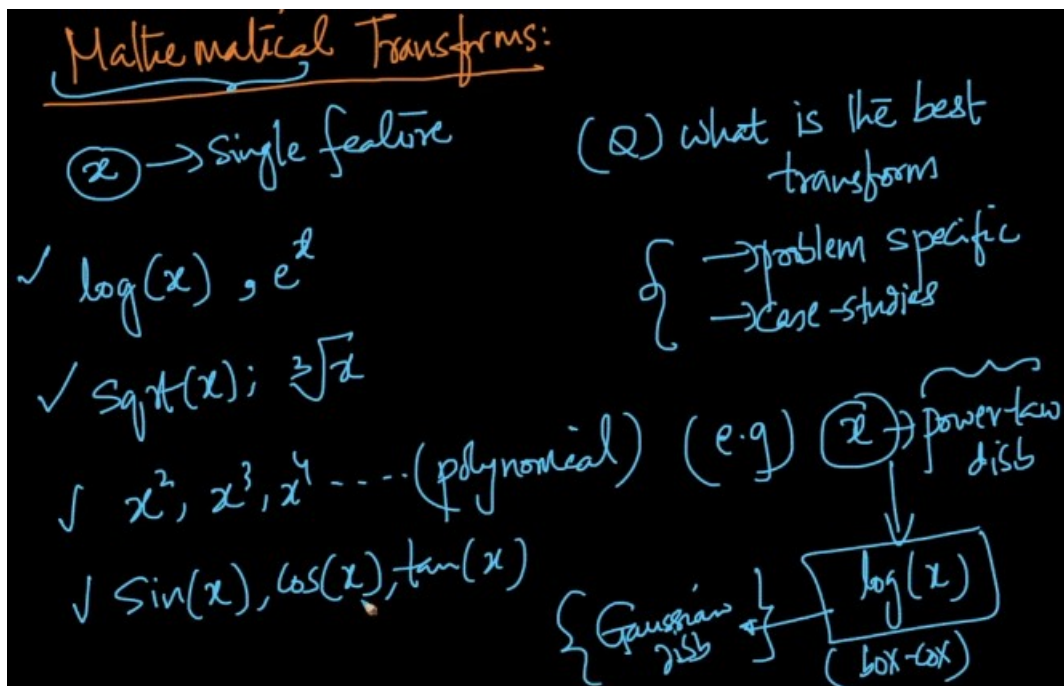 Mathematical Transforms:
x → Single feature
✓ log(x), eˣ
✓ Sqrt(x); ∛x
✓ x², x³, x⁴ ---- (polynomial)
✓ Sin(x), cos(x), tan(x)
(Q) What is the best
transform
→ problem specific
→ case-studies
(e.g) x → power-law
disb
log(x)
(box-cox)
Gaussian
disb